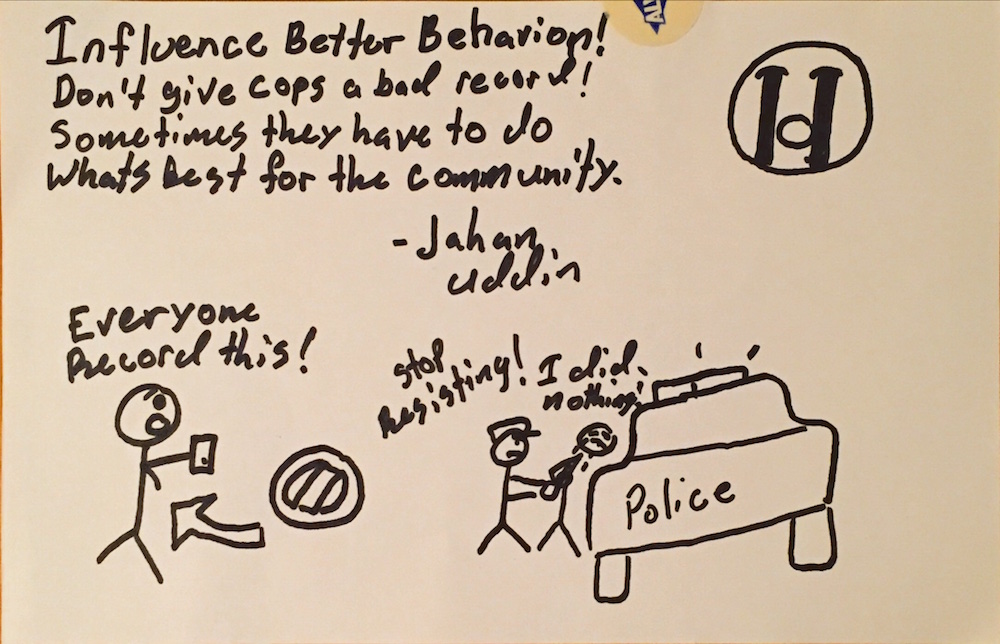 Influence Better Behavior!
Don't give cops a bad record!
Sometimes they have to do
Whats Best for the community.
- Jahan
Uddin
Everyone
Record this!
Stop
Resisting!
I did
nothing!
Police